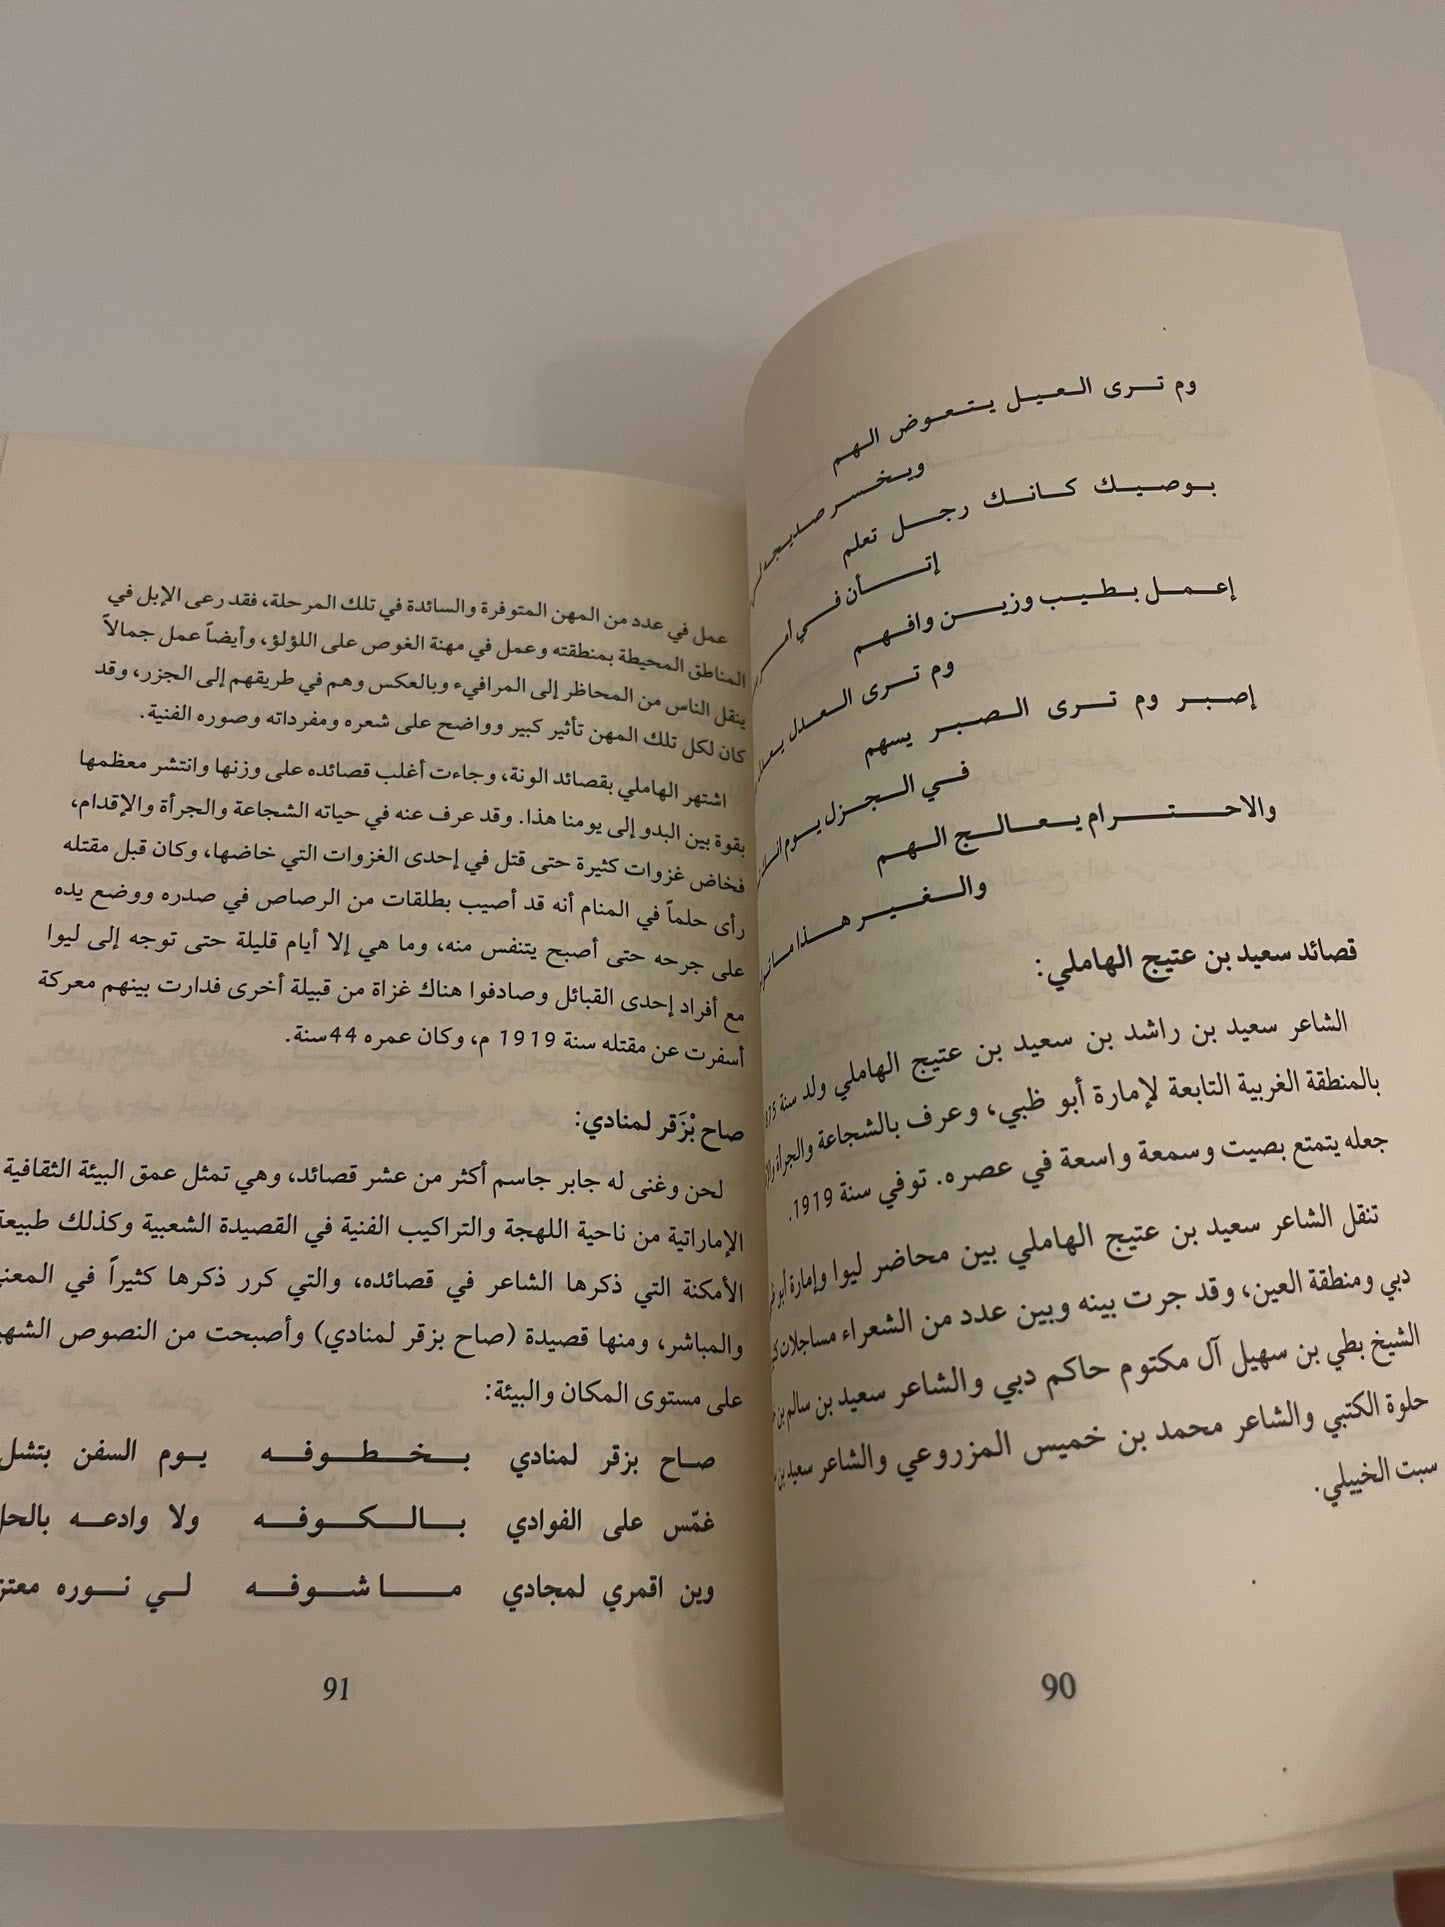 وم تـرى الـعـيـل يـتـعـوض الـهـم
ويـخـسـر صـديـجـه
بـوصـيـك كـانـك رجـل تعلم
إتـأن فـي
إعـمـل بـطـيـب وزيـن وافـهـم
وم تـرى الـعـدل
إصـبـر وم تـرى الـصـبـر يسهم
فـي الـجـزل يـوم
والاحـتـرام يـعـالـج الـهـم
والـغـيـر هـذا
قصائد سعيد بن عتيج الهاملي:
الشاعر سعيد بن راشد بن سعيد بن عتيج الهاملي ولد سنة
بالمنطقة الغربية التابعة لإمارة أبو ظبي، وعرف بالشجاعة والجرأة
جعله يتمتع بصيت وسمعة واسعة في عصره. توفي سنة 1919.
تنقل الشاعر سعيد بن عتيج الهاملي بين محاضر ليوا وإمارة أبو
دبي ومنطقة العين، وقد جرت بينه وبين عدد من الشعراء مساجلات
الشيخ بطي بن سهيل آل مكتوم حاكم دبي والشاعر سعيد بن سالم بن
حلوة الكتبي والشاعر محمد بن خميس المزروعي والشاعر سعيد بن
سبت الخييلي.
90
عمل في عدد من المهن المتوفرة والسائدة في تلك المرحلة، فقد رعى الإبل في
المناطق المحيطة بمنطقته وعمل في مهنة الغوص على اللؤلؤ، وأيضاً عمل جمالاً
ينقل الناس من المحاظر إلى المرافيء وبالعكس وهم في طريقهم إلى الجزر، وقد
كان لكل تلك المهن تأثير كبير وواضح على شعره ومفرداته وصوره الفنية.
اشتهر الهاملي بقصائد الونة، وجاءت أغلب قصائده على وزنها وانتشر معظمها
بقوة بين البدو إلى يومنا هذا. وقد عرف عنه في حياته الشجاعة والجرأة والإقدام،
فخاض غزوات كثيرة حتى قتل في إحدى الغزوات التي خاضها، وكان قبل مقتله
رأى حلماً في المنام أنه قد أصيب بطلقات من الرصاص في صدره ووضع يده
على جرحه حتى أصبح يتنفس منه، وما هي إلا أيام قليلة حتى توجه إلى ليوا
مع أفراد إحدى القبائل وصادفوا هناك غزاة من قبيلة أخرى فدارت بينهم معركة
أسفرت عن مقتله سنة 1919 م، وكان عمره 44سنة.
صاح بْزَقر لمنادي:
لحن وغنى له جابر جاسم أكثر من عشر قصائد، وهي تمثل عمق البيئة الثقافية
الإماراتية من ناحية اللهجة والتراكيب الفنية في القصيدة الشعبية وكذلك طبيعة
الأمكنة التي ذكرها الشاعر في قصائده، والتي كرر ذكرها كثيراً في
والمباشر، ومنها قصيدة (صاح بزقر لمنادي) وأصبحت من النصوص
على مستوى المكان والبيئة:
صـاح بزقر لمنادي بـخـطـوفـه يـوم السفن
غمّس على الفوادي بـالـكـوفـه ولا وادعـه
وين اقمري لمجادي مـاشـوفـه لـي نـوره
91